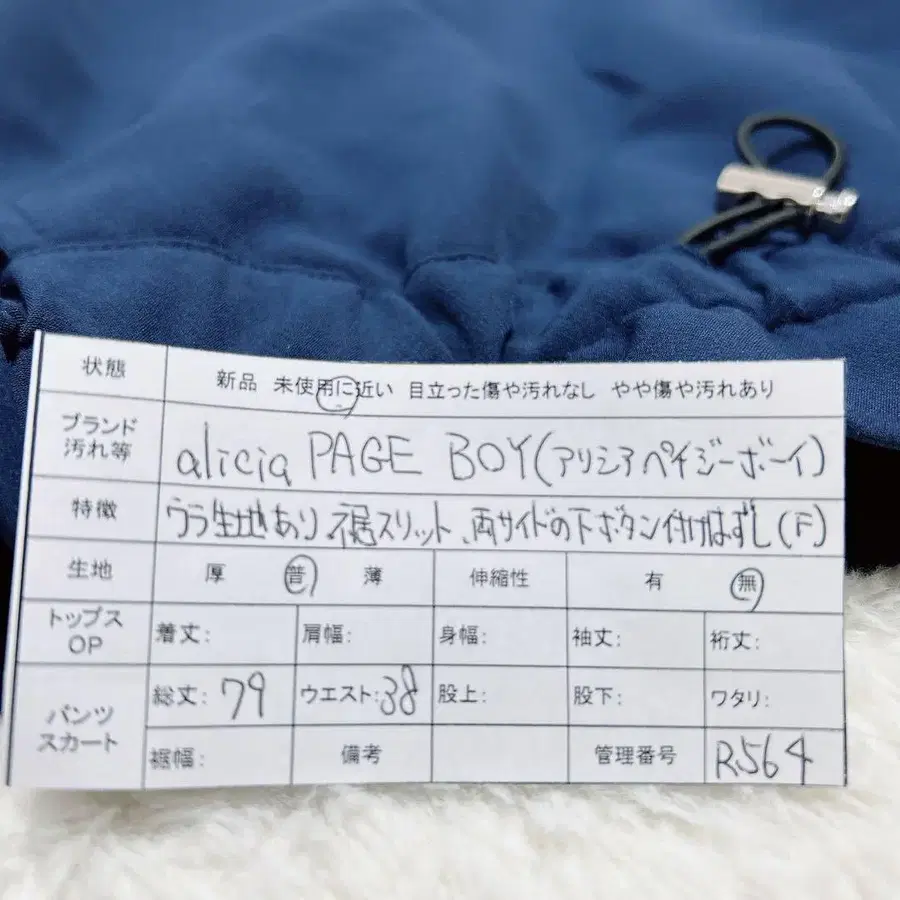 状態 新品 未使用に近い 目立った傷や汚れなし やや傷や汚れあり
ブランド
汚れ等 alicia PAGE BOY(アリシアペイジーボーイ)
特徴 ウラ生地あり、裾スリット、両サイドの下ボタン付けはずし(F)
生地 厚 普 薄 伸縮性 有 無
トップス
OP 着丈: 肩幅: 身幅: 袖丈: 裄丈:
パンツ
スカート 総丈: 79 ウエスト: 38 股上: 股下: ワタリ:
裾幅: 備考 管理番号 R564